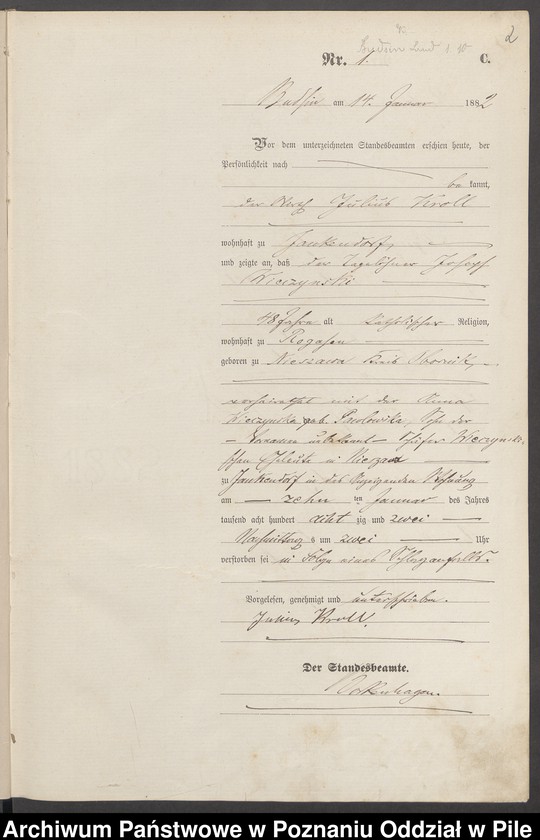 2
Nr. 1. C.
Budsin am 14. Januar 1882
Vor dem unterzeichneten Standesbeamten erschien heute, der
Persönlichkeit nach
be kannt,
der Julius Kroll
wohnhaft zu Jankendorf,
und zeigte an, daß der Tagelöhner Joseph
Wieczynski
48 Jahre alt katholischer Religion,
wohnhaft zu Rogasen
geboren zu Nieszawa Kreis
verheirathet mit der Anna
Wieczynska geb. Pawlowska, Sohn der
Vornamen unbekannt Schäfer Wieczynski-
schen Eheleute in
zu Jankendorf in des Wohnung
am zehn ten Januar des Jahres
tausend acht hundert acht zig und zwei
Nachmittag s um zwei Uhr
verstorben sei in Folge eines Schlaganfalls.
Vorgelesen, genehmigt und unterschrieben.
Julius Kroll.
Der Standesbeamte.
Archiwum Państwowe w Poznaniu Oddział w Pile